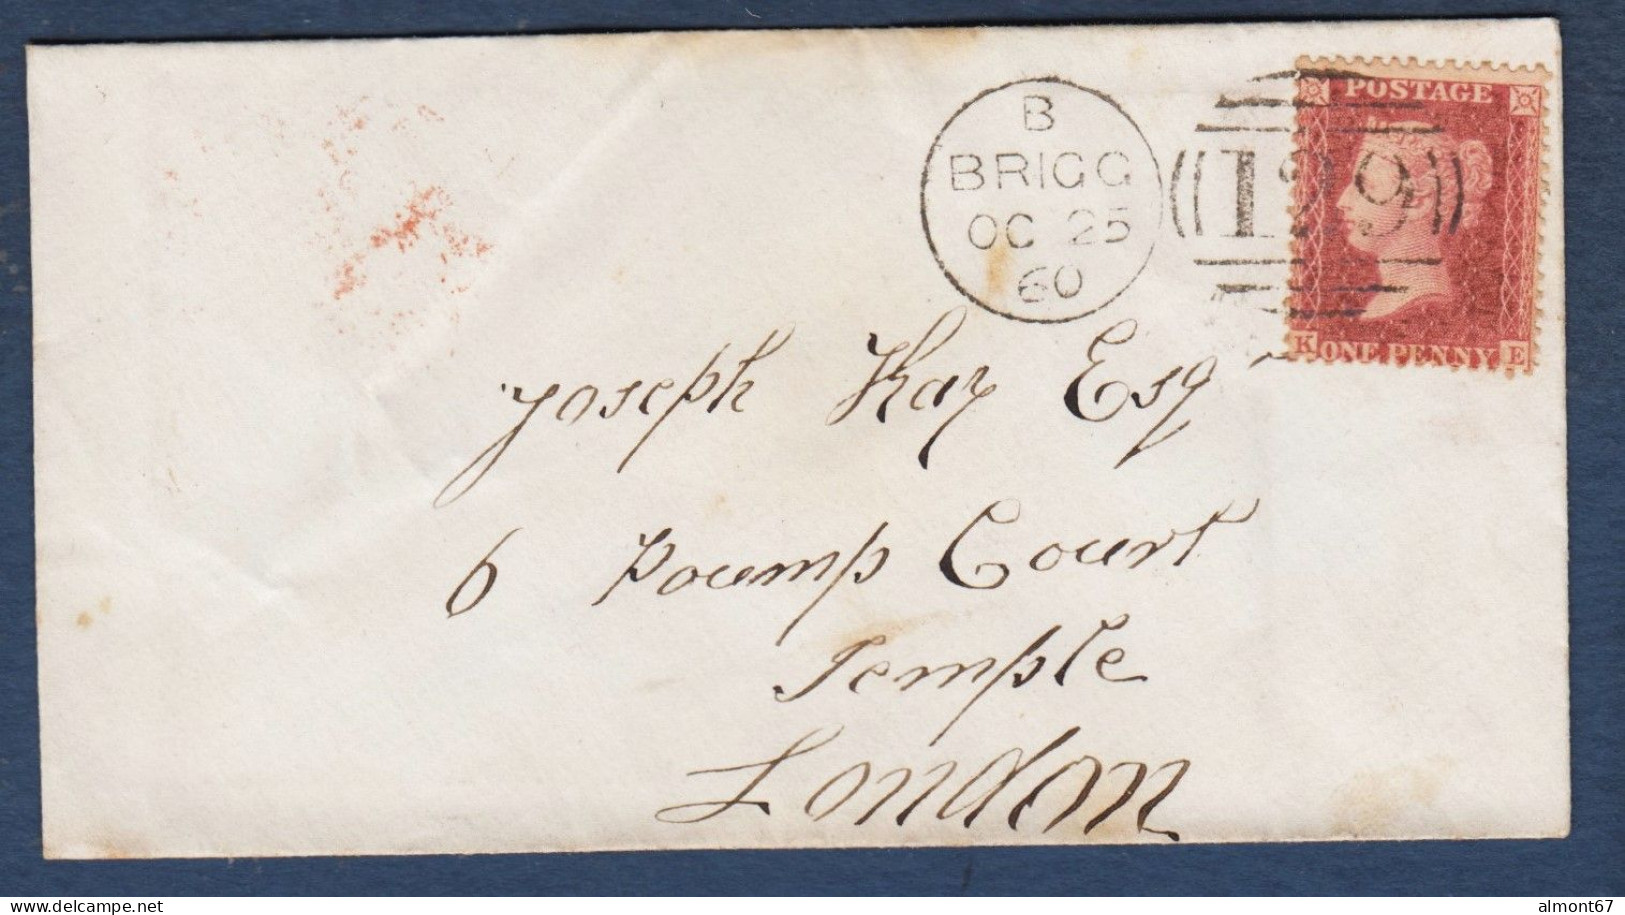 B
BRIGG
OC 25
60
129
POSTAGE
K ONE PENNY E
Joseph Kay Esqr
6 Poump Court
Temple
London
www.delcampe.net
almont67